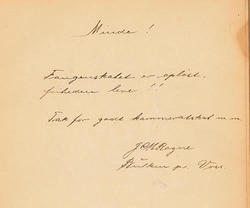 Minde!
Fangenskabet er opløst.
friheden leve!!
Tak for godt kammeratskab m.m.
pr. Voss